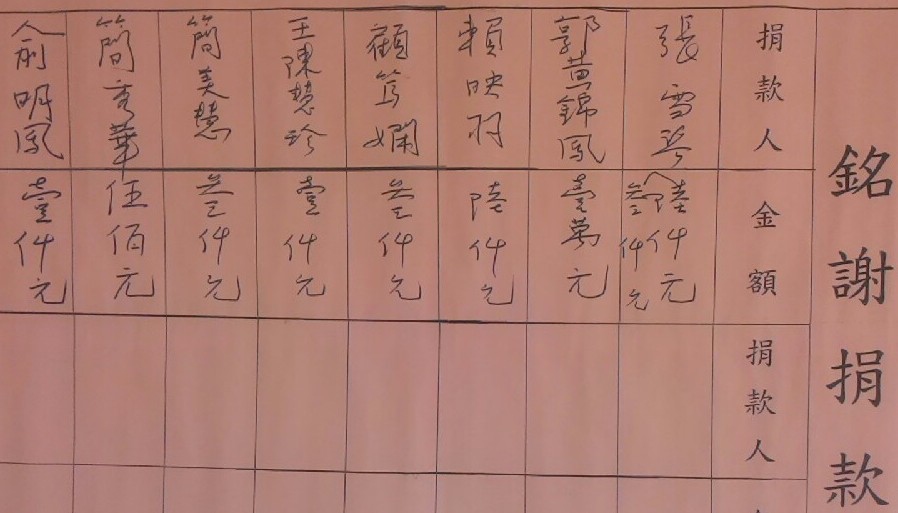 銘謝捐款
捐款人
金額
捐款人
張雪琴
陸仟元
叁仟元
郭黃錦鳳
壹萬元
賴映羽
陸仟元
顧篤嫻
叁仟元
王陳慧珍
壹仟元
簡美慧
叁仟元
簡秀華
伍佰元
俞明鳳
壹仟元